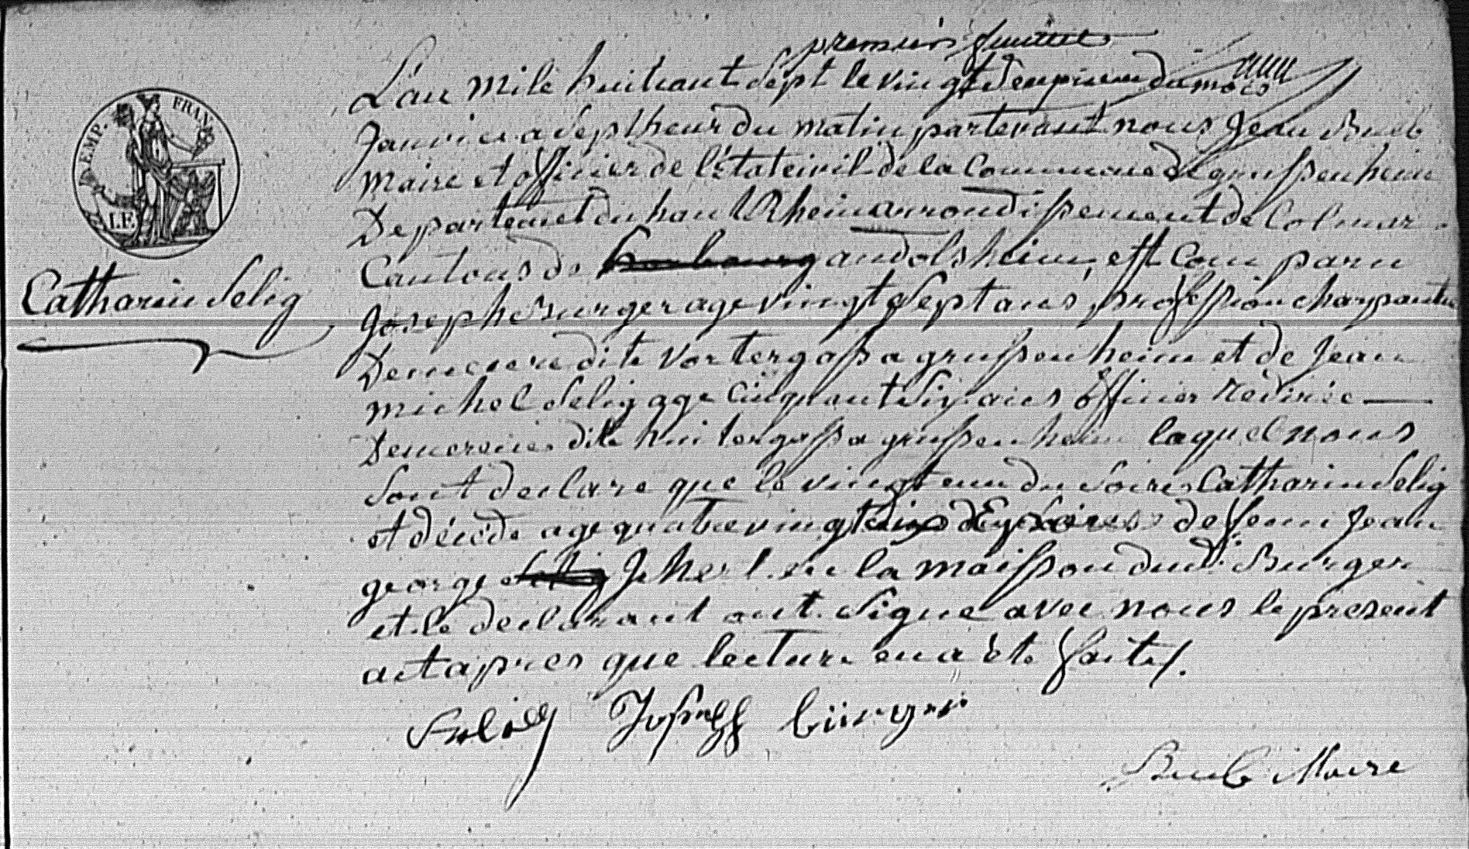 premier feuillet
L'an mile huit cant sept le vingt deuxieme du mois
Janvier a sept heur du matin par devant nous Jean Bueb
maire et officier de l'état civil de la Commune de grussenheim
Departemet du haut Rhein arrondissement de Colmar
Cantons de andolsheim, est Comparu
Joseph Burger age vingt sept ans, profession charpantie
Demeure dite vortergass a grussenheim et de Jean
michel Selig age cinquant six ans officier rediree
Demereure dite hintergass a grussenheim laquel nous
sont declare que le vingt un du soires Catharin Selig
et décéde age quatre vingt de feuu Jean
george en la maisson dudt Burger
et le declarant ont Signe avec nous le present
act apres que lecture en a été faite.
Catharin Selig
Selig Joseph bürger
Bueb Maire
TIMP. FRAN.